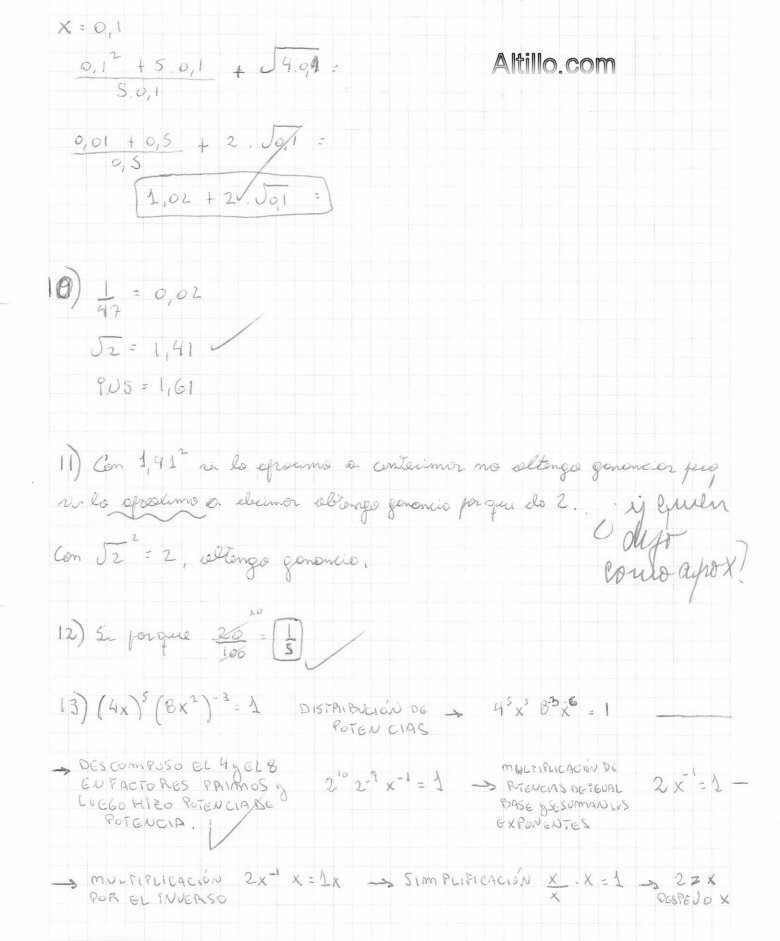 x = 0,1
Altillo.com
0,1² + 5.0,1 / 5.0,1 + √4.0,1 =
0,01 + 0,5 / 0,5 + 2 . √0,1 =
1,02 + 2 . √0,1 =
10) 1/47 = 0,02
√2 = 1,41
= 1,61
11) Con 1,41² si lo aproximo a centécimos no obtengo ganancias pero
si lo aproximo a decimos obtengo ganancia porque da 2.. ¿y quien
dijo
Con √2² = 2, obtengo ganancia.
como aprox?
12) Si porque 20/100 = 1/5
13) (4x)⁵ (8x²)⁻³ = 1 DISTRIBUCIÓN DE POTENCIAS → 4⁵x⁵ 8⁻³x⁻⁶ = 1
→ DESCOMPUSO EL 4 y EL 8
EN FACTORES PRIMOS y
LUEGO HIZO POTENCIA DE
POTENCIA.
2¹⁰ 2⁻⁹ x⁻¹ = 1
→ MULTIPLICACIÓN DE
POTENCIAS DE IGUAL
BASE y SE SUMAN LOS
EXPONENTES
2x⁻¹ = 1
→ MULTIPLICACIÓN
POR EL INVERSO
2x⁻¹ x = 1x
→ SIMPLIFICACIÓN x/x . x = 1
→ 2 = x
DESPEJO x